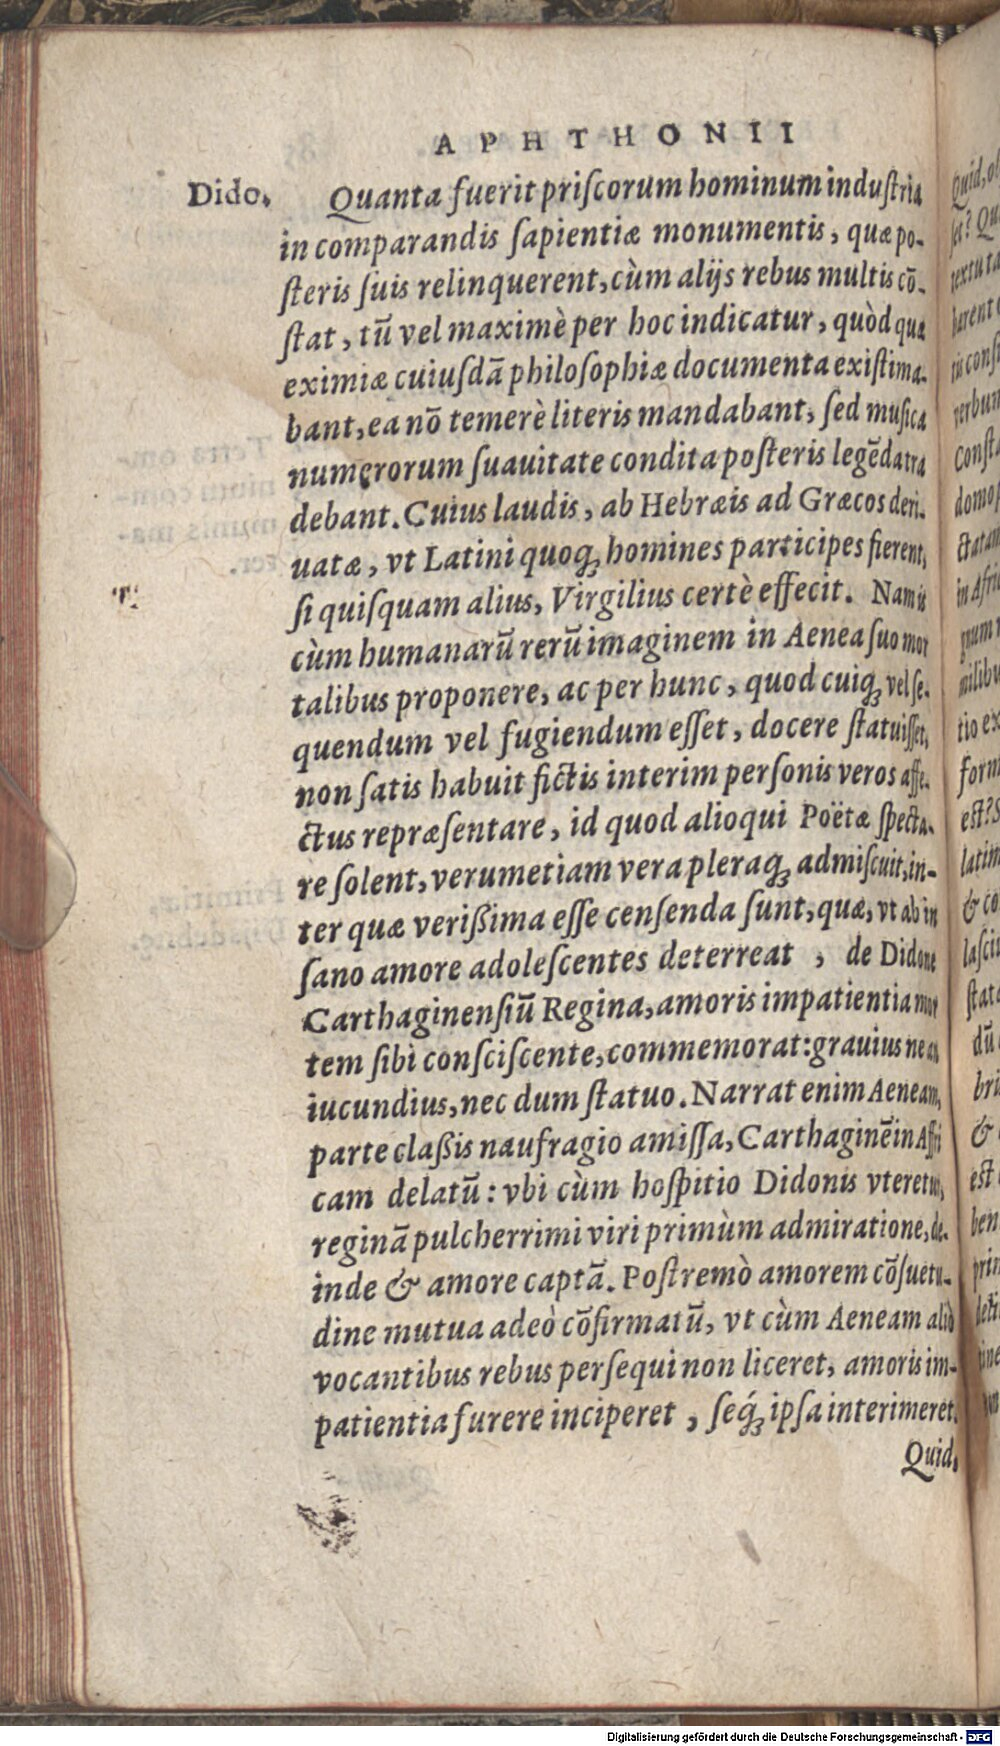 APHTHONII
Dido.
Quanta fuerit priſcorum hominum induſtria
in comparandis ſapientiæ monumentis, quæ po-
ſteris ſuis relinquerent, cùm alijs rebus multis cō-
ſtat, tū vel maximè per hoc indicatur, quòd quæ
eximiæ cuiuſdā philoſophiæ documenta exiſtima-
bant, ea nō temerè literis mandabant, ſed muſica
numerorum ſuauitate condita poſteris legēda tra
debant. Cuius laudis, ab Hebræis ad Græcos deri-
uatæ, vt Latini quoq; homines participes fierent,
ſi quiſquam alius, Virgilius certè effecit. Nam is
cùm humanarū rerū imaginem in Aenea ſuo mor
talibus proponere, ac per hunc, quod cuiq; vel ſe-
quendum vel fugiendum eſſet, docere ſtatuiſſet,
non ſatis habuit fictis interim perſonis veros affe-
ctus repræſentare, id quod alioqui Poëtæ ſpecta-
re ſolent, verumetiam vera pleraq; admiſcuit, in-
ter quæ verißima eſſe cenſenda ſunt, quæ, vt ab in
ſano amore adoleſcentes deterreat, de Didone
Carthaginenſiū Regina, amoris impatientia mor
tem ſibi conſciſcente, commemorat: grauius ne an
iucundius, nec dum ſtatuo. Narrat enim Aeneam,
parte claßis naufragio amiſſa, Carthaginē in Affri
cam delatū: vbi cùm hoſpitio Didonis vteretur,
reginā pulcherrimi viri primùm admiratione, de-
inde & amore captā. Poſtremò amorem cōſuetu-
dine mutua adeò cōfirmatū, vt cùm Aeneam aliò
vocantibus rebus perſequi non liceret, amoris im-
patientia furere inciperet, ſeq́; ipſa interimeret.
Quid,
Digitalisierung gefördert durch die Deutsche Forschungsgemeinschaft - DFG